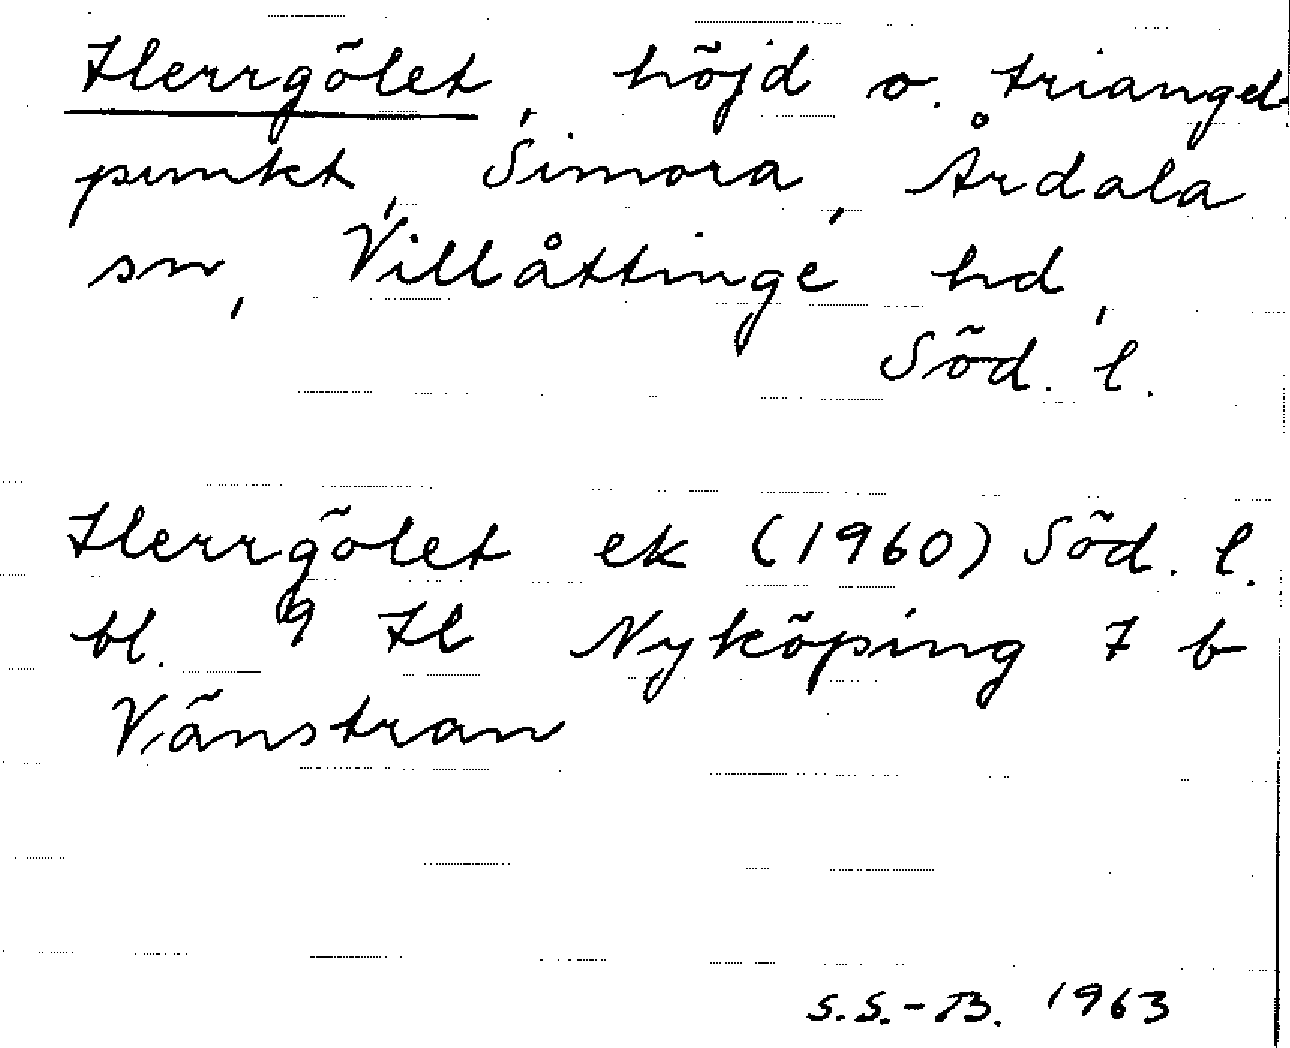 Herrgölet, höjd o. triangel-
punkt, Simora, Årdala
sn, Villåttinge hd,
Söd. l.
Herrgölet ek (1960) Söd. l.
bl. 9 H Nyköping 7 b
Vänstran
S.S.-B. 1963